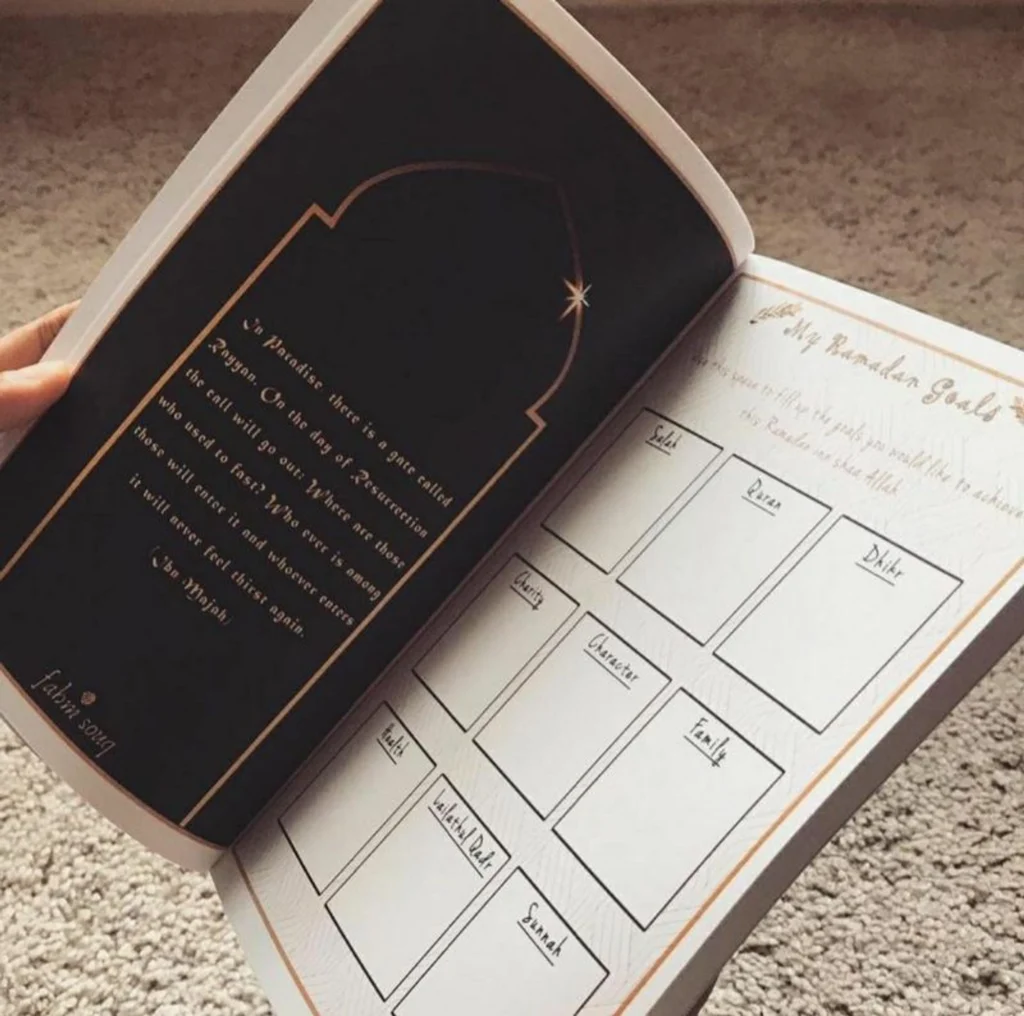 In Paradise there is a gate called
Rayyan. On the day of Resurrection
the call will go out: Where are those
who used to fast? Who ever is among
those will enter it and whoever enters
it will never feel thirst again.
(Ibn Majah)
fabni souq
My Ramadan Goals
this space to fill up the goals you would like to achieve
this Ramadan inn shaa Allah
Salah
Quran
Dhikr
Charity
Character
Family
Health
Lailathul Qadr
Sunnah